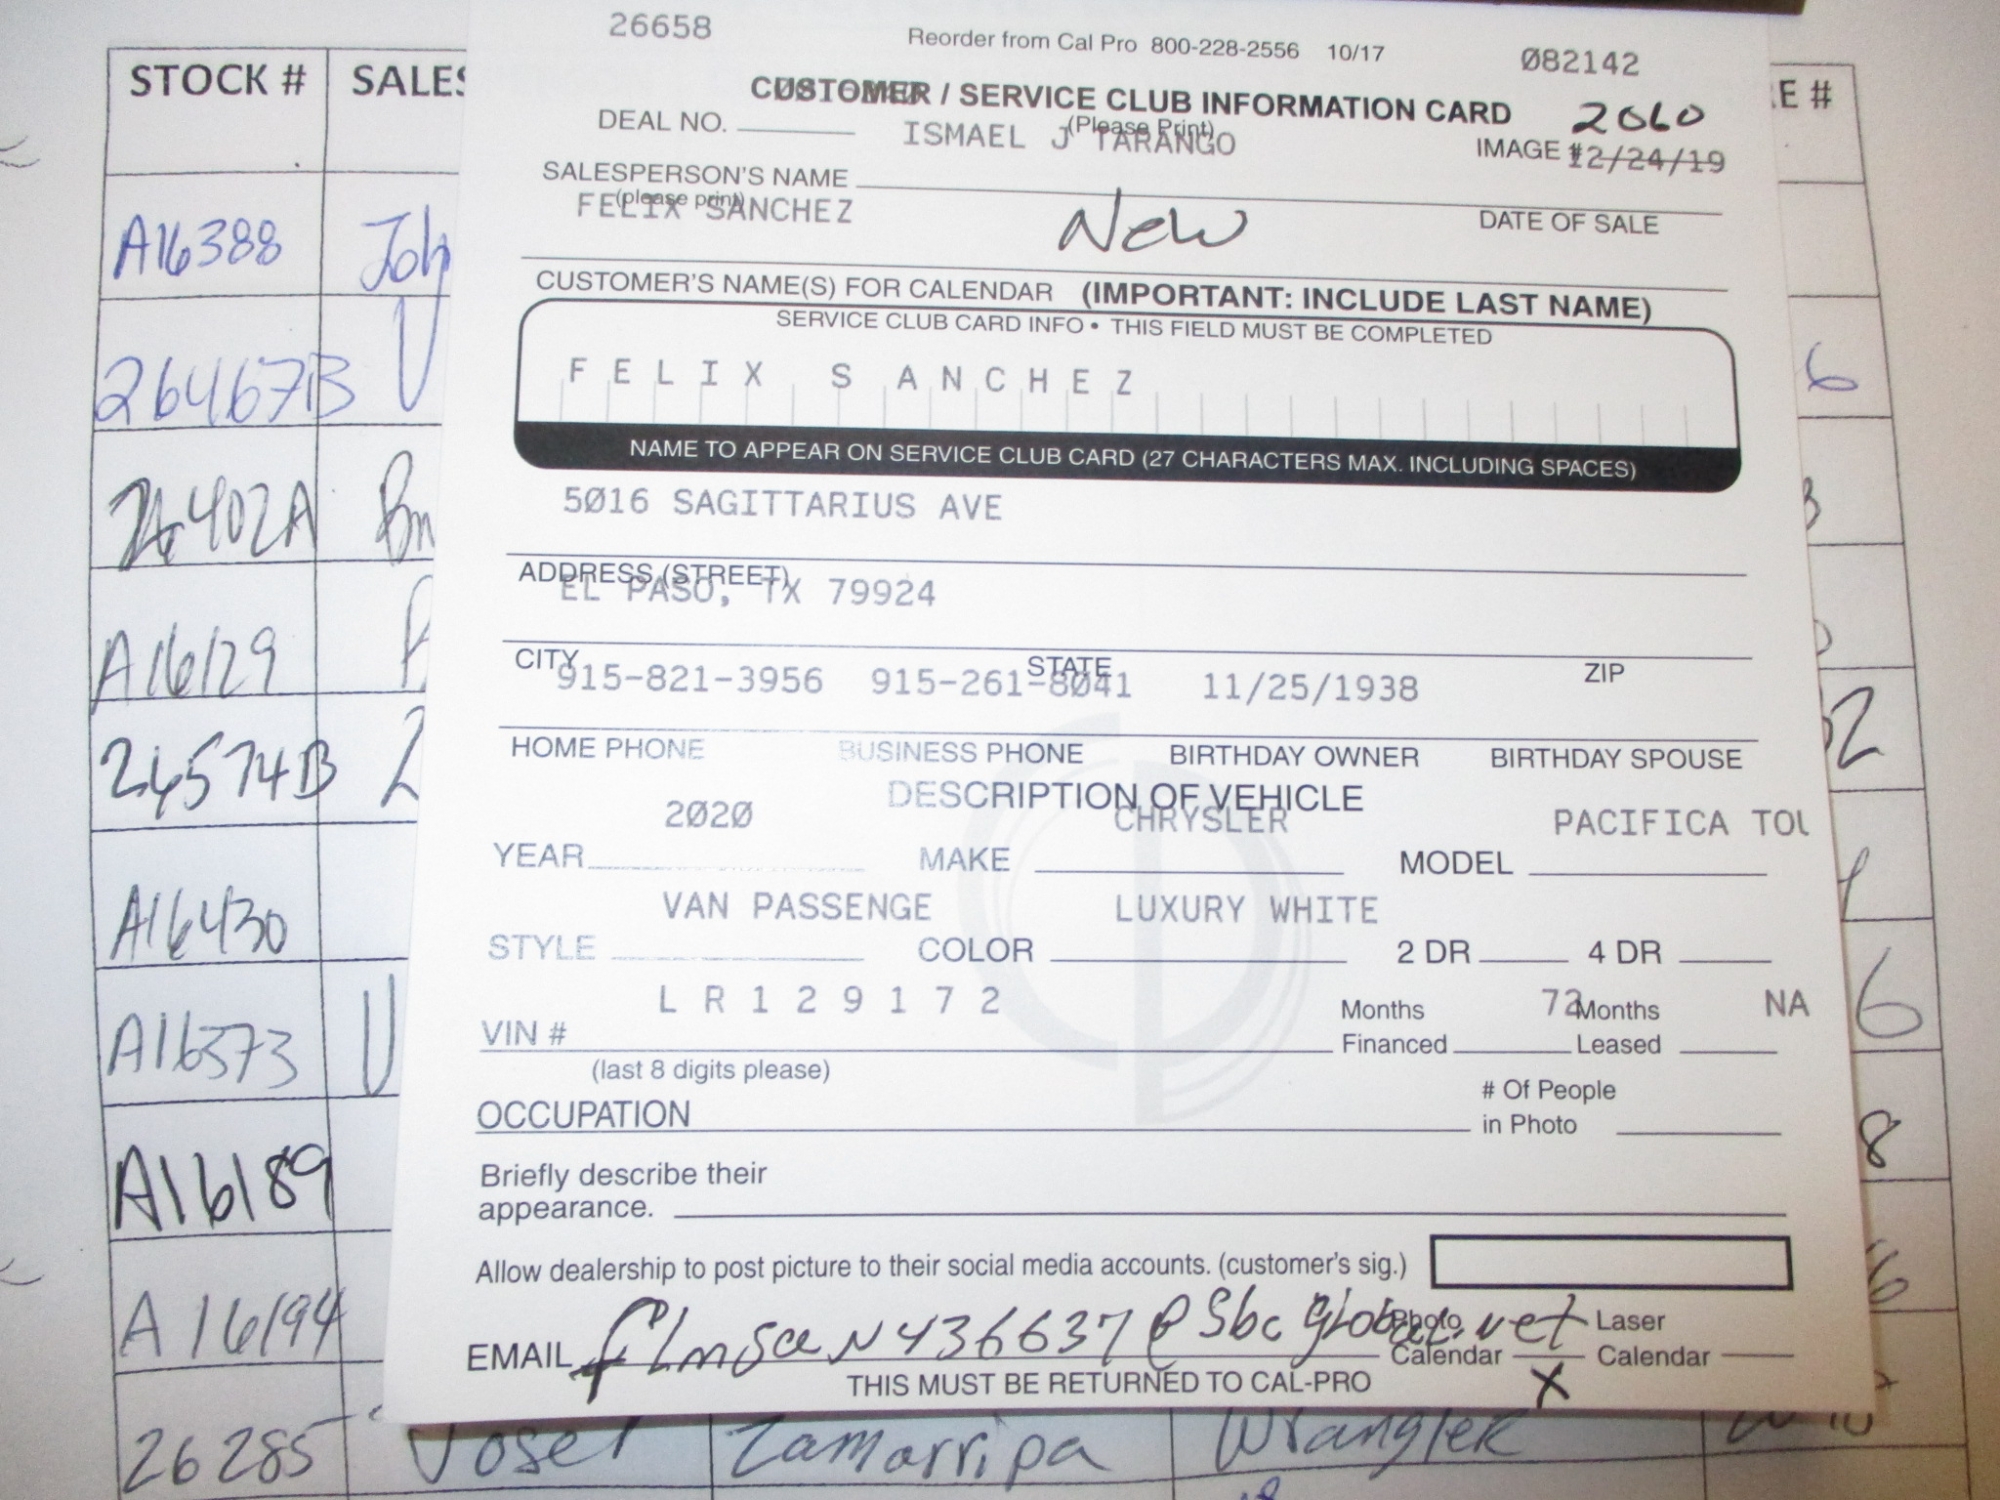 26658
Reorder from Cal Pro 800-228-2556 10/17
082142
STOCK #
CUSTOMER / SERVICE CLUB INFORMATION CARD
2060
E #
DEAL NO.
(Please Print)
ISMAEL J TARANGO
IMAGE #
12/24/19
SALESPERSON'S NAME
(please print)
FELIX SANCHEZ
New
DATE OF SALE
A16388
CUSTOMER'S NAME(S) FOR CALENDAR (IMPORTANT: INCLUDE LAST NAME)
SERVICE CLUB CARD INFO • THIS FIELD MUST BE COMPLETED
FELIX SANCHEZ
26467B
6
NAME TO APPEAR ON SERVICE CLUB CARD (27 CHARACTERS MAX. INCLUDING SPACES)
5016 SAGITTARIUS AVE
26402A
ADDRESS (STREET)
EL PASO, TX 79924
A16129
CITY
STATE
ZIP
915-821-3956 915-261-8041 11/25/1938
HOME PHONE
BUSINESS PHONE
BIRTHDAY OWNER
BIRTHDAY SPOUSE
26574B
DESCRIPTION OF VEHICLE
2020
CHRYSLER
PACIFICA TOU
YEAR
MAKE
MODEL
VAN PASSENGE
LUXURY WHITE
A16430
STYLE
COLOR
2 DR
4 DR
LR129172
72
NA
6
VIN #
Months Financed
Months Leased
A16373
(last 8 digits please)
OCCUPATION
# Of People in Photo
8
A16189
Briefly describe their
appearance.
Allow dealership to post picture to their social media accounts. (customer's sig.)
A16194
EMAIL flmsaN436637@sbcglobal.net
Photo Calendar
X
Laser Calendar
THIS MUST BE RETURNED TO CAL-PRO
26285 Josel Zamarripa Wrangler